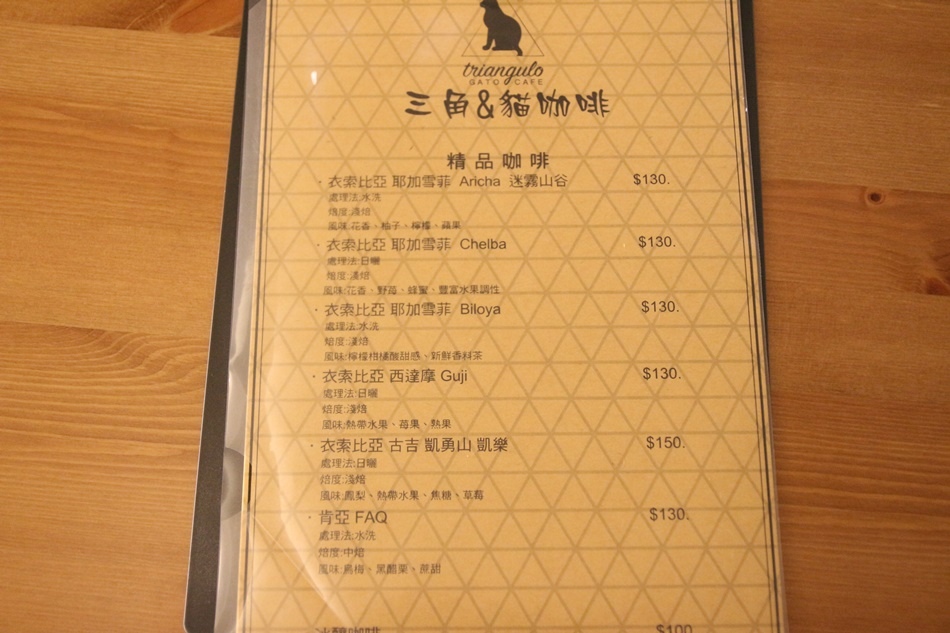 triangulo
GATO CAFE
三角&貓咖啡
精品咖啡
·衣索比亞 耶加雪菲 Aricha 迷霧山谷 $130.
處理法:水洗
焙度:淺焙
風味:花香、柚子、檸檬、蘋果
·衣索比亞 耶加雪菲 Chelba $130.
處理法:日曬
焙度:淺焙
風味:花香、野莓、蜂蜜、豐富水果調性
·衣索比亞 耶加雪菲 Biloya $130.
處理法:水洗
焙度:淺焙
風味:檸檬柑橘酸甜感、新鮮香料茶
·衣索比亞 西達摩 Guji $130.
處理法:日曬
焙度:淺焙
風味:熱帶水果、莓果、熟果
·衣索比亞 古吉 凱勇山 凱樂 $150.
處理法:日曬
焙度:淺焙
風味:鳳梨、熱帶水果、焦糖、草莓
·肯亞 FAQ $130.
處理法:水洗
焙度:中焙
風味:烏梅、黑醋栗、蔗甜
冰釀咖啡 $100